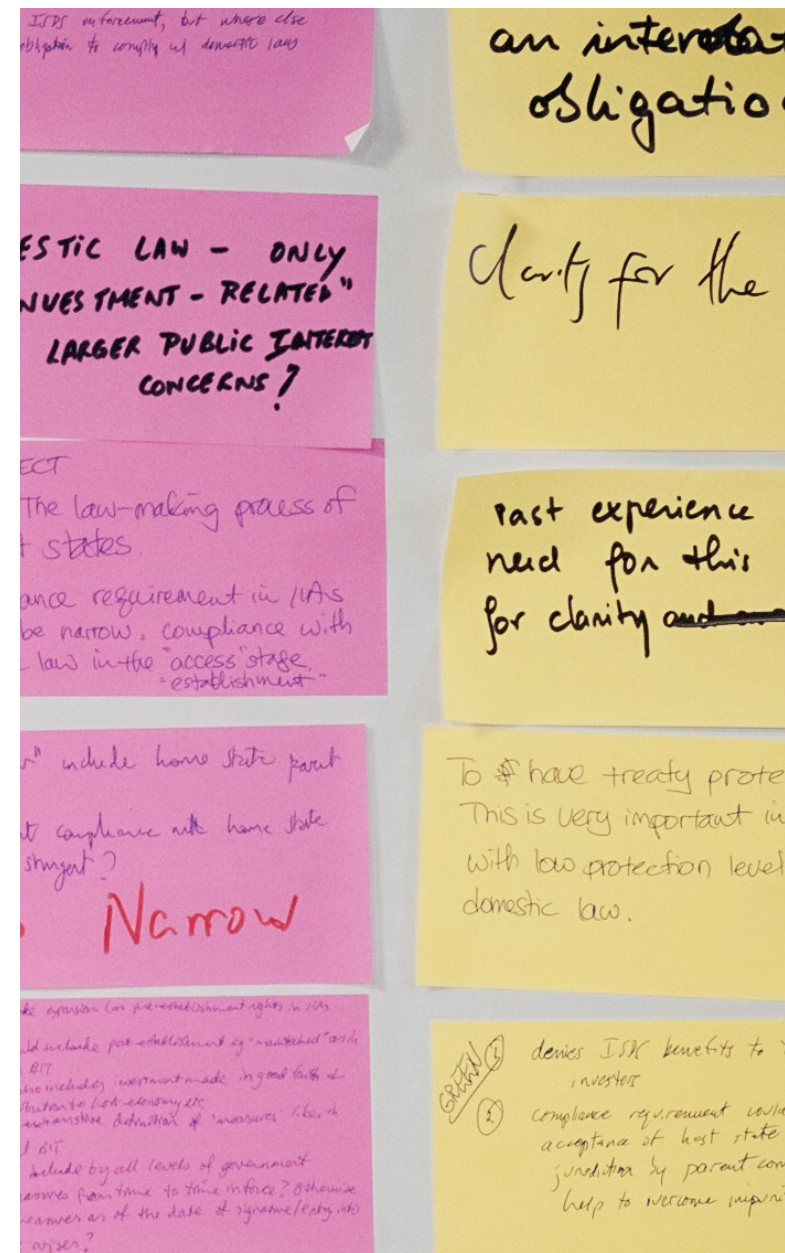 ISDS enforcement, but where else
obligation to comply w/ domestic laws
ESTIC LAW - ONLY
NVESTMENT - RELATED"
LARGER PUBLIC INTEREST
CONCERNS?
ECT
The law-making process of
t states.
ance requirement in IIAs
be narrow, compliance with
law in the "access" stage.
"establishment"
" include home state parent
compliance with home state
stringent?
Narrow
expansion pre-establishment rights in IIAs
include post-establishment eg "maintained" as in
BIT
also includes investment made in good faith &
to host economy etc
definition of 'measures' like in
BIT
include by all levels of government
measures from time to time in force? Otherwise
measures as of the date of signature/entry into
arises?
an
obligatio
Clarity for the
Past experience
need for this
for clarity and
To have treaty prote
This is very important in
with low protection level
domestic law.
GREEN
1
denies ISDS benefits to
investors
2
compliance requirement would
acceptance of host state
jurisdiction by parent com
help to overcome impuni